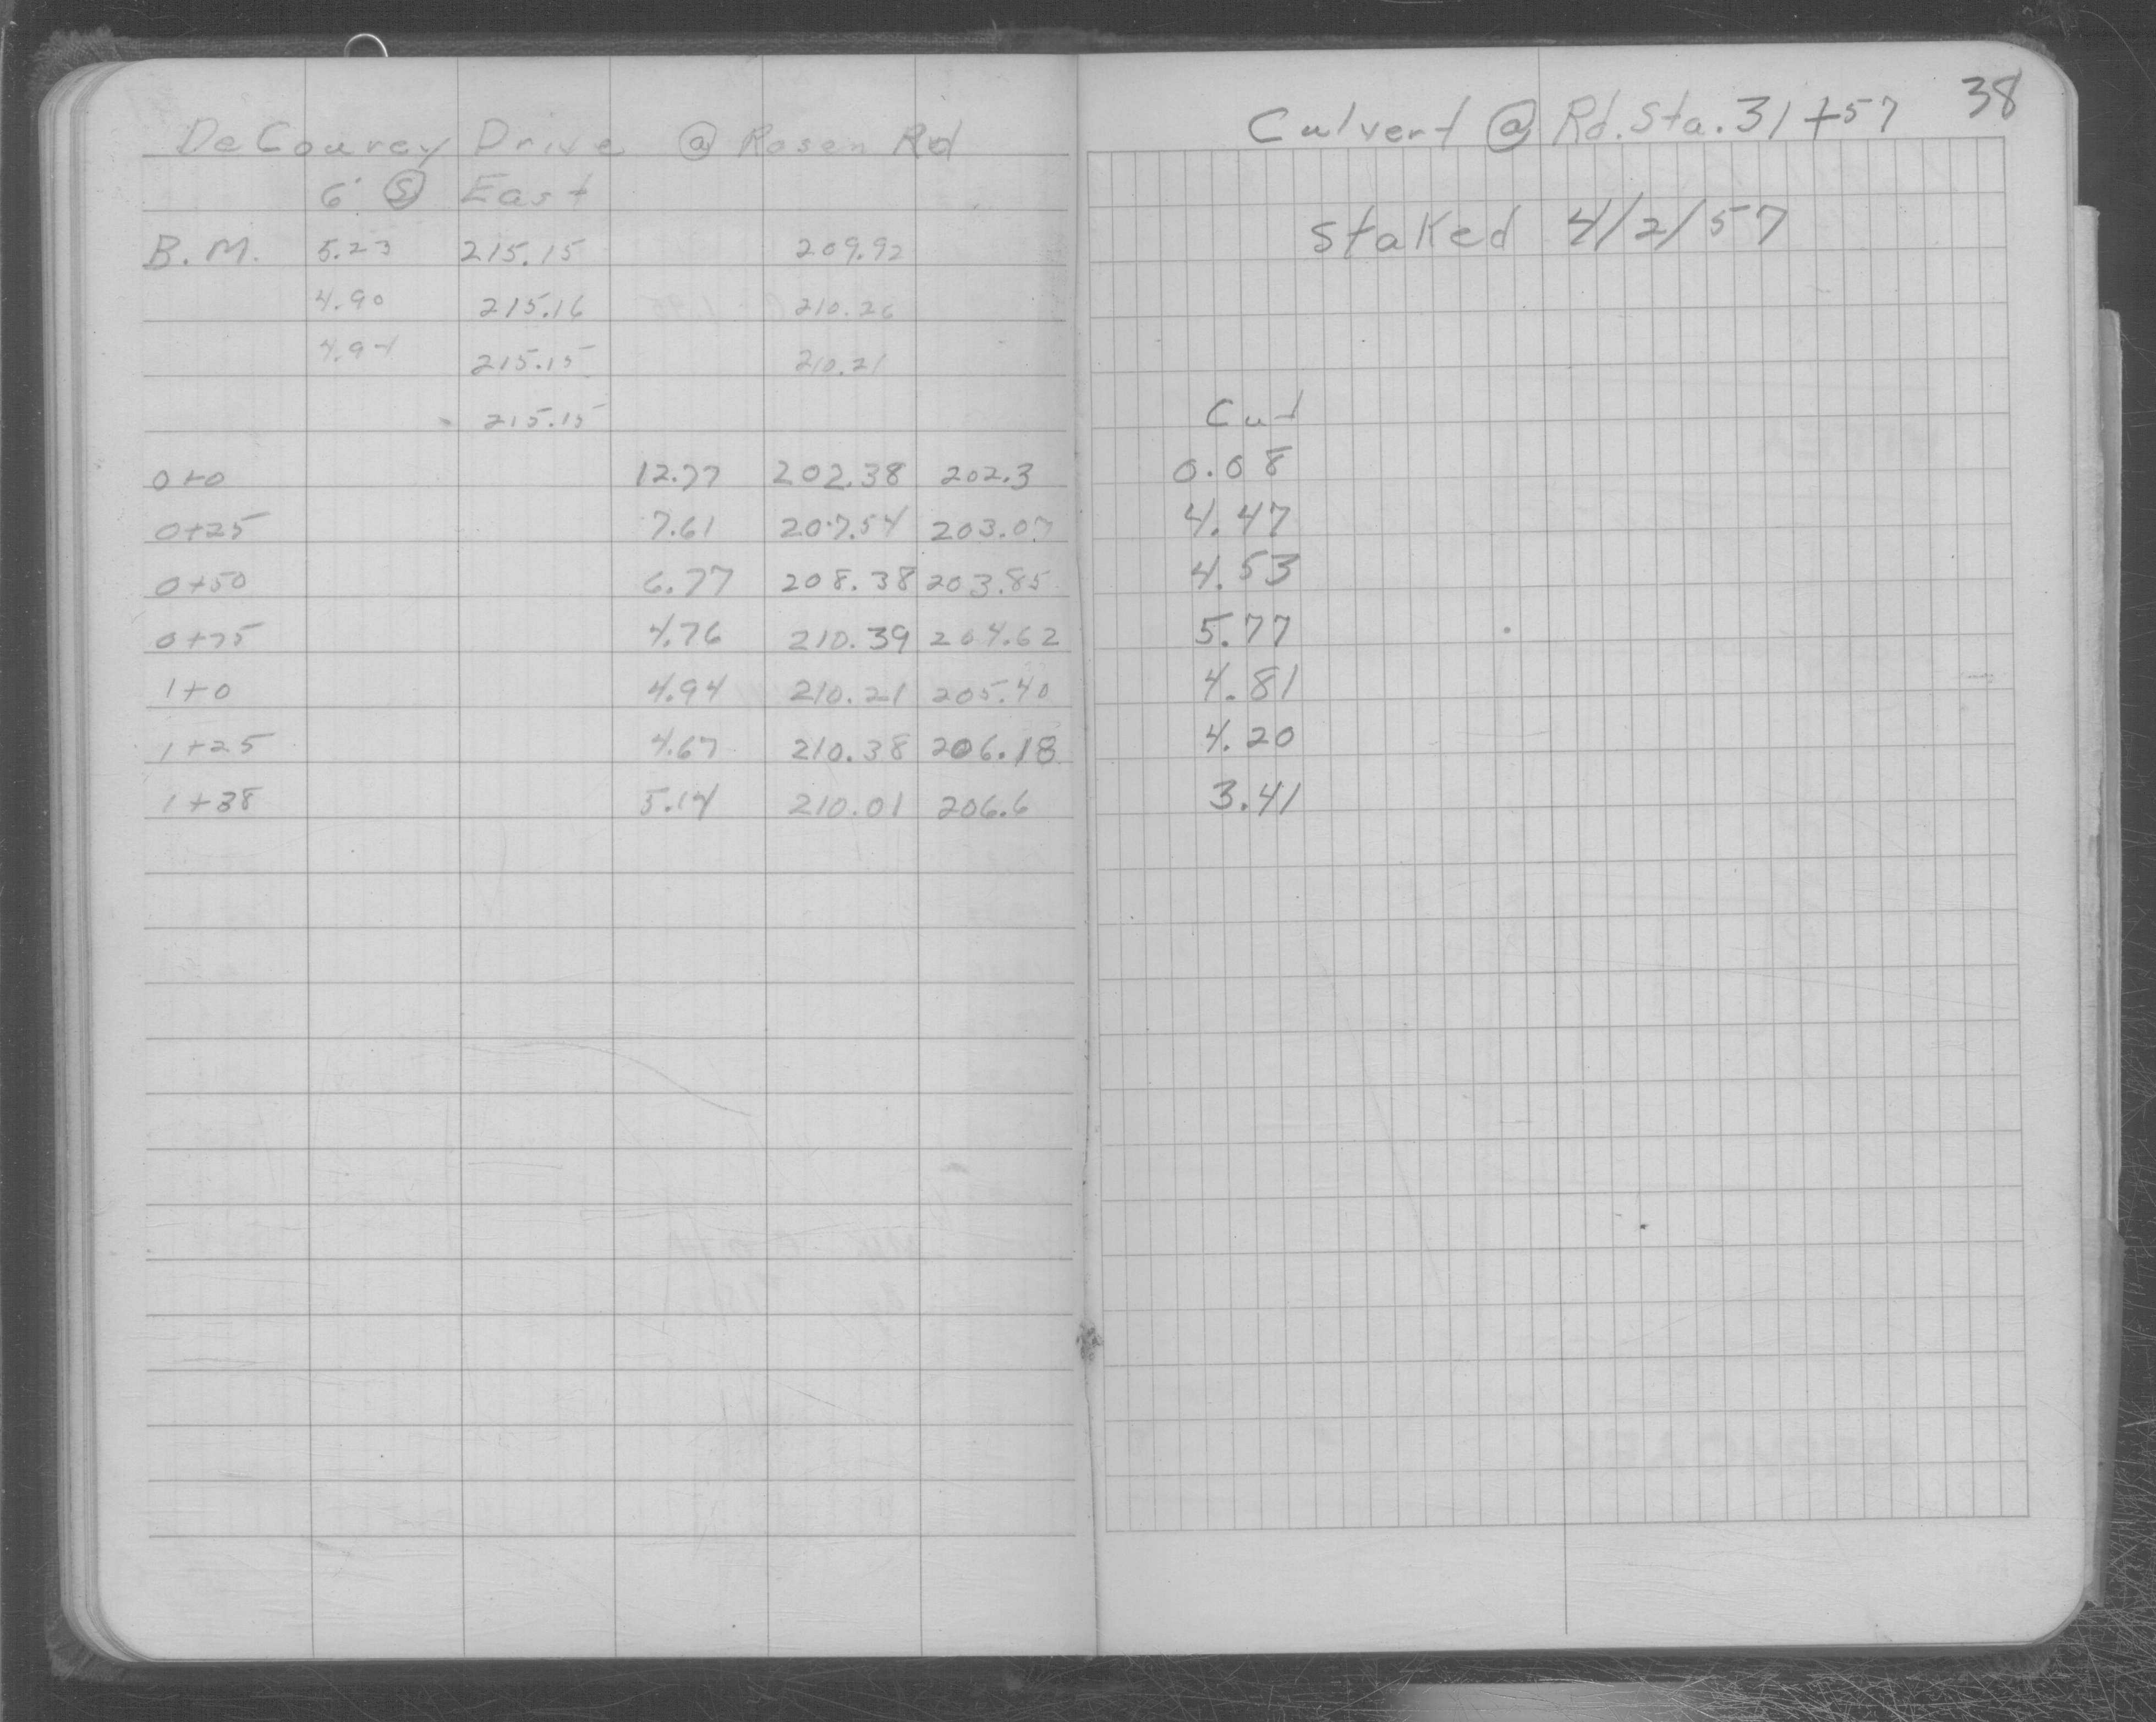 DeCourcy Drive @ Rosen Rd
6' Ⓢ East
B.M. 5.23 215.15 209.92
4.90 215.16 210.26
4.94 215.15 210.21
215.15
0+0 12.77 202.38 202.3
0+25 7.61 207.54 203.07
0+50 6.77 208.38 203.85
0+75 4.76 210.39 204.62
1+0 4.94 210.21 205.40
1+25 4.67 210.38 206.18
1+38 5.14 210.01 206.6
38
Culvert @ Rd. Sta. 31+57
Staked 4/2/57
Cut
0.08
4.47
4.53
5.77
4.81
4.20
3.41